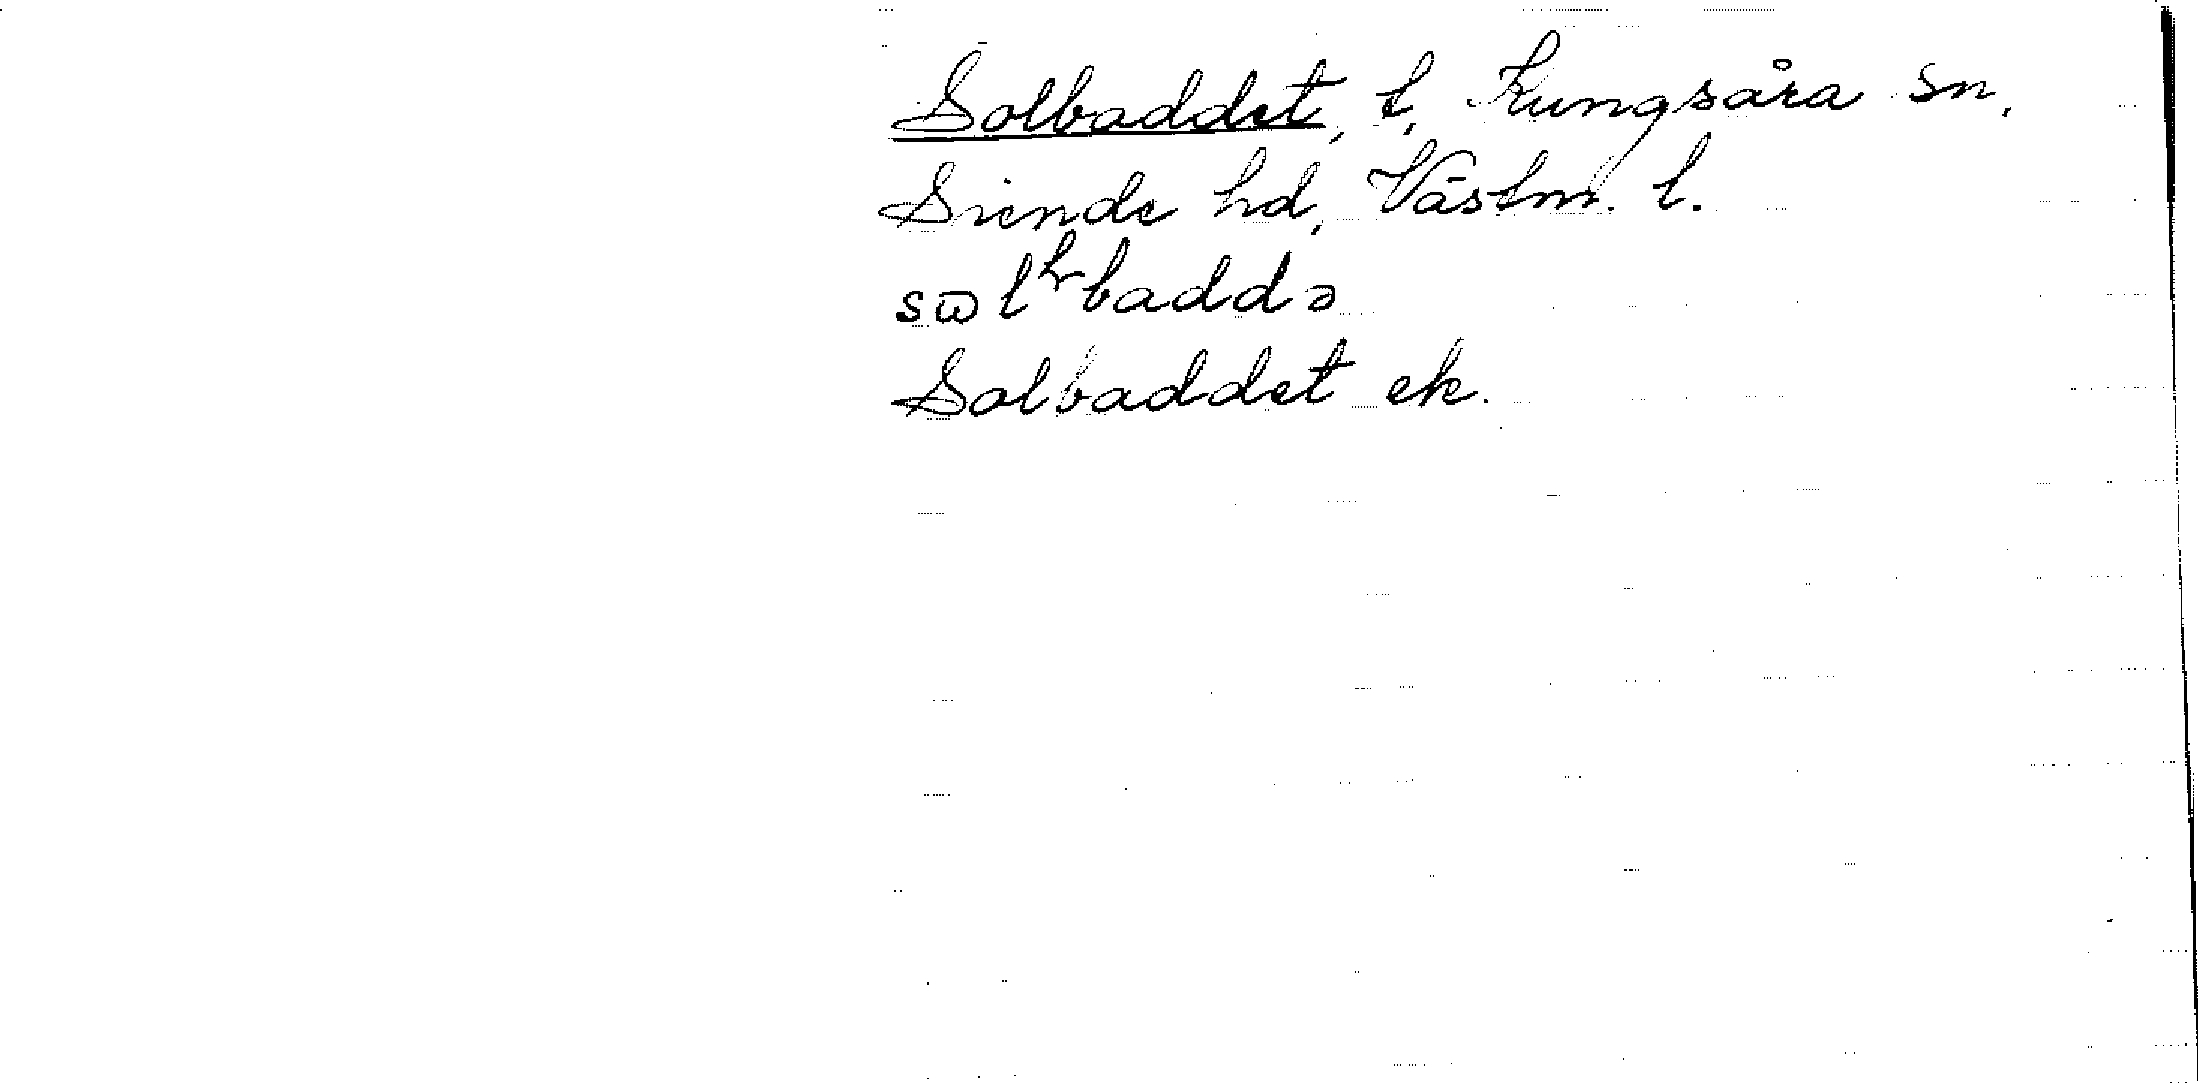 Solbaddet, t, Kungsåra sn,
Siende hd, Västm. l.
sɷlʰbaddə
Solbaddet ek.